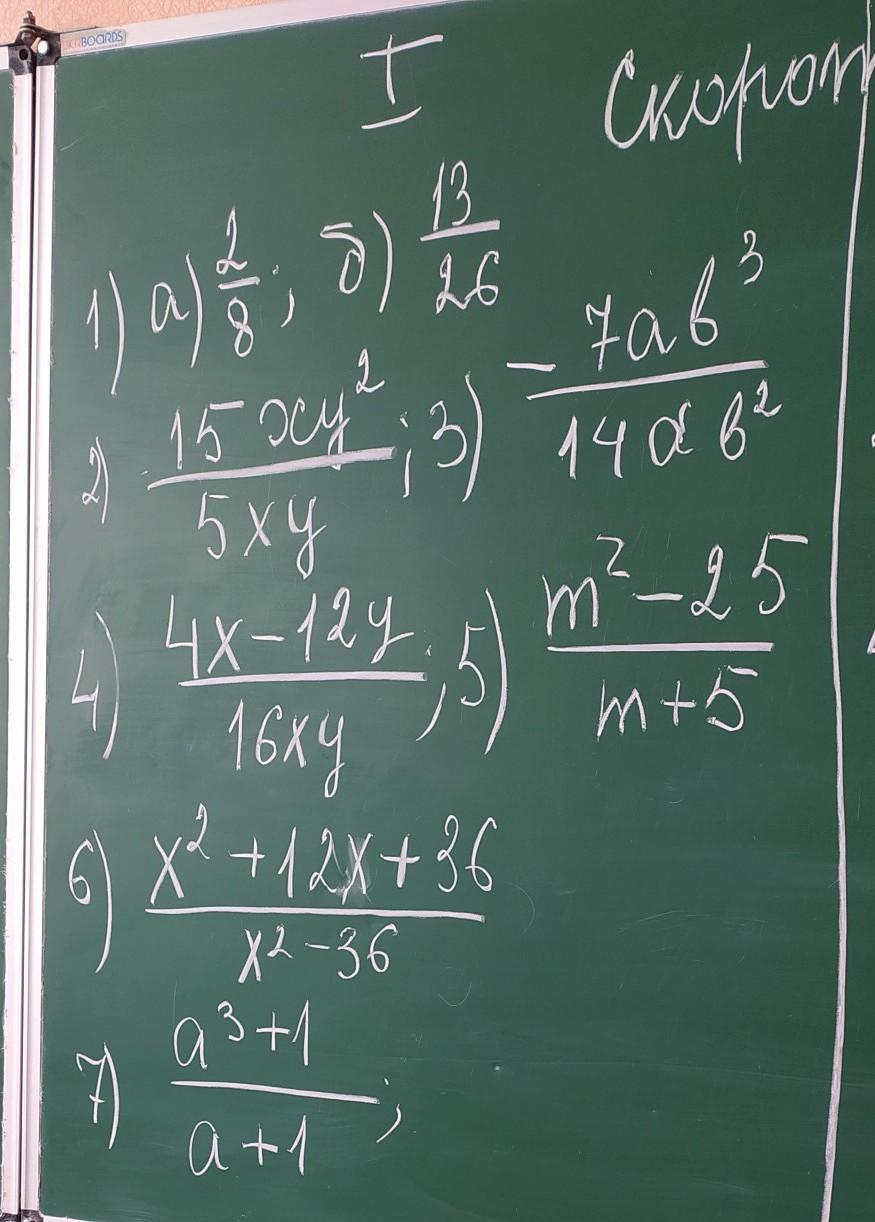 BOARDS
I
Скорот
1) а) 2/8; б) 13/26
2) 15xy²/5xy; 3) -7ab³/14ab²
4) 4x-12y/16xy; 5) m²-25/m+5
6) x²+12x+36/x²-36
7) a³+1/a+1;